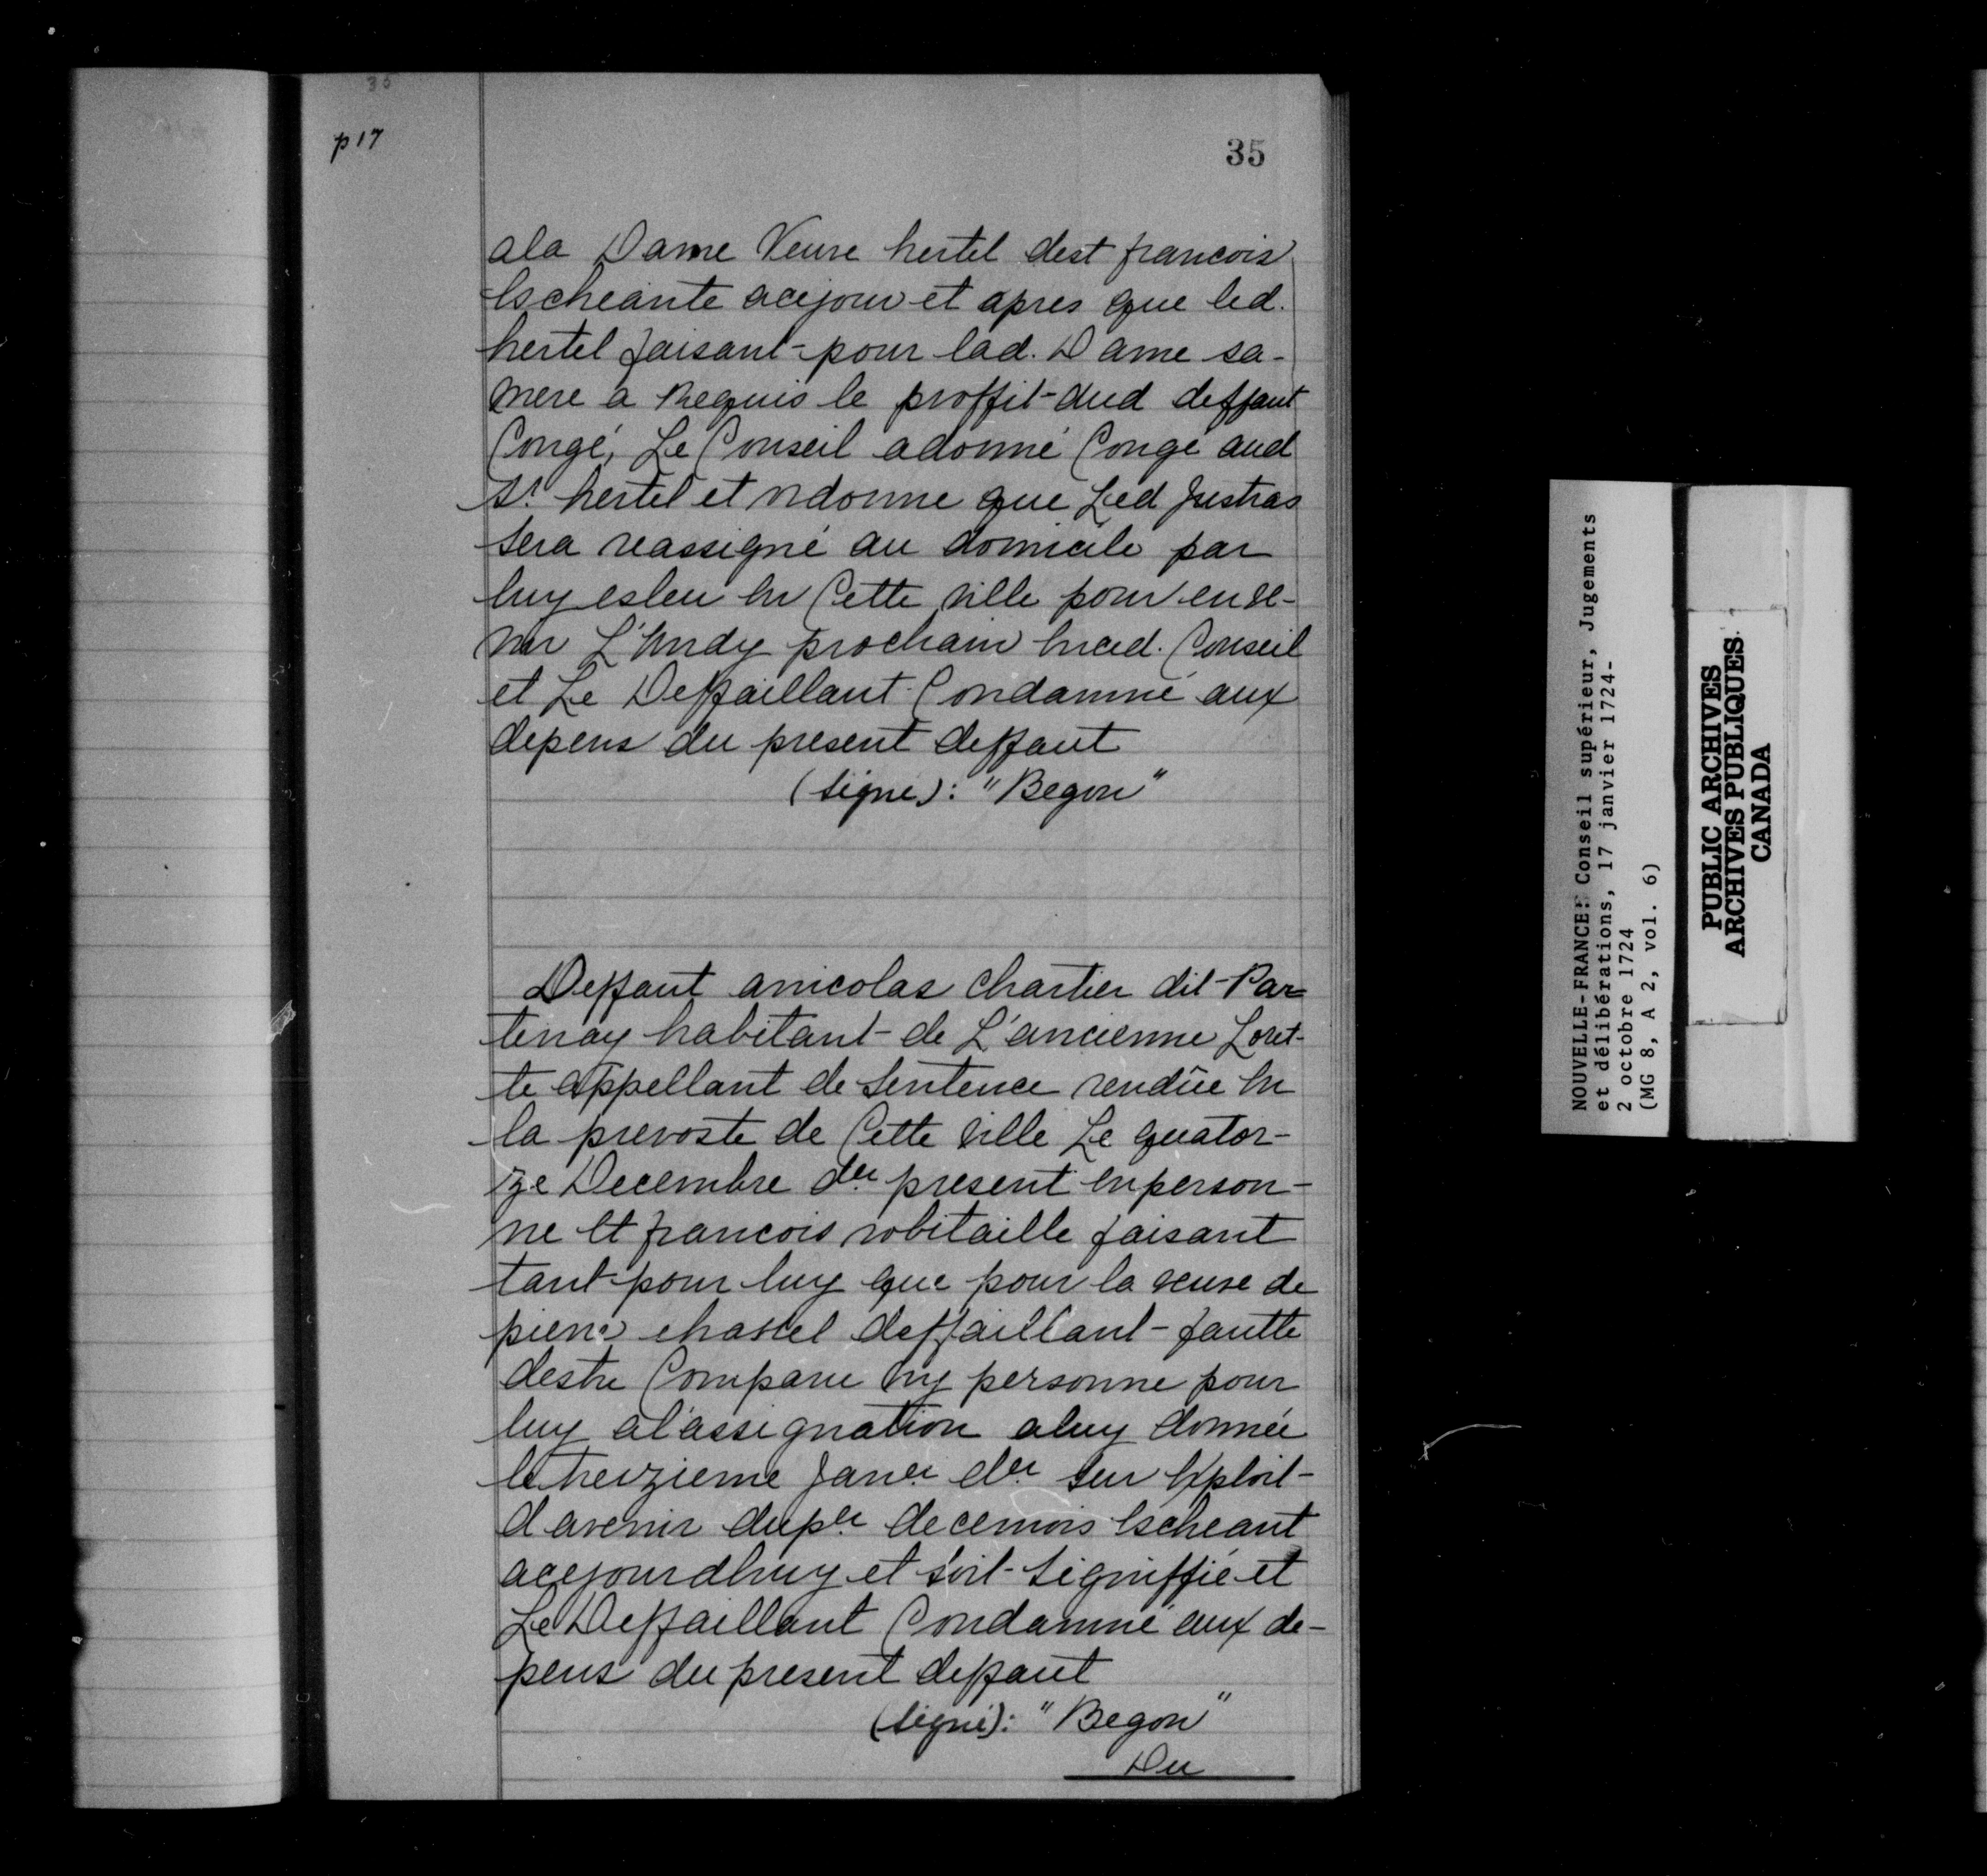 36
p 17
35
ala Dame Veuve hertel dest francois
Escheante acejour et apres que led.
hertel faisant pour lad. Dame sa-
mere a Requis le proffit dud deffaut
Congé, Le Conseil adonné Congé aud
Sr. hertel et ordonne que Led Jutras
sera reassigné au domicile par
luy esleu En Cette ville pour en ve-
nir L'undy prochain Enced. Conseil
et Le Deffaillant Condamné aux
depens du present deffaut
(signé): "Begon"
Deffaut anicolas Chartier dit Par=
tenay habitant de L'ancienne Loret-
te appellant de Sentence rendüe En
la prevosté de Cette ville Le quator-
ze Decembre der present enperson-
ne Et francois robitaille faisant
tant pour luy que pour la veuve de
pierre chastel deffaillant fautte
destre Comparu ny personne pour
luy al'assignation aluy donnée
le treizieme Janer der sur Exploit
davenir duper decemois Escheant
acejourdhuy et soit Signiffié et
Le Deffaillant Condamné aux de-
pens du present deffaut
(signé): "Begon"
Du
NOUVELLE-FRANCE: Conseil supérieur, Jugements
et délibérations, 17 janvier 1724-
2 octobre 1724
(MG 8, A 2, vol. 6)
PUBLIC ARCHIVES
ARCHIVES PUBLIQUES
CANADA